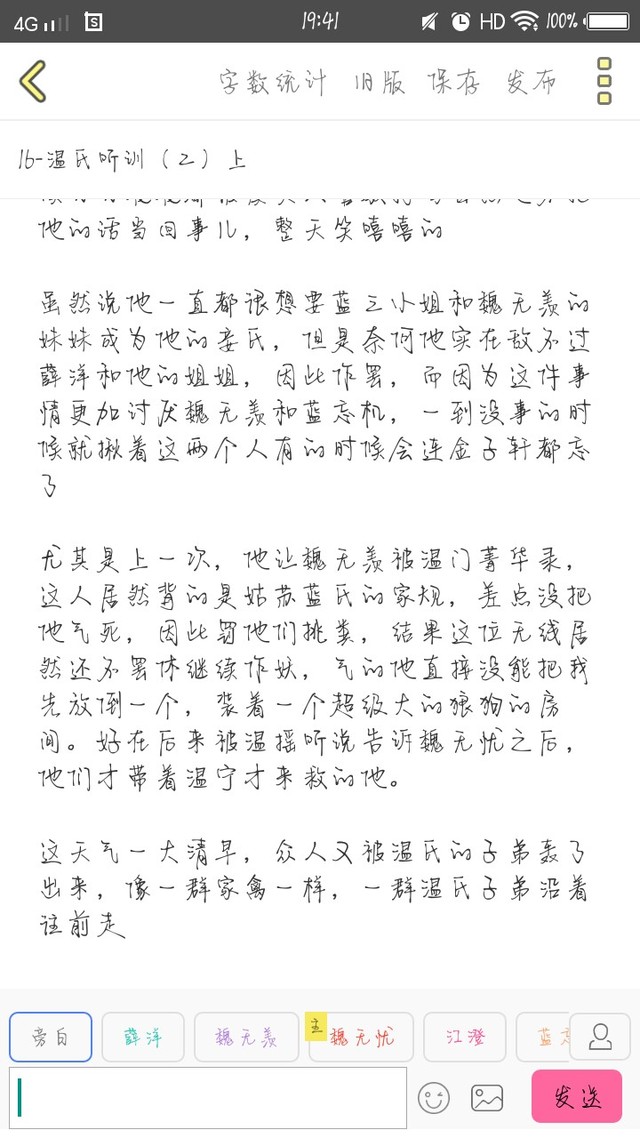 4G
19:41
HD
100%
字数统计 旧版 保存 发布
16-温氏听训（2）上
他的话当回事儿，整天笑嘻嘻的
虽然说他一直都很想要蓝三小姐和魏无羡的
妹妹成为他的妾氏，但是奈何他实在敌不过
薛洋和他的姐姐，因此作罢，而因为这件事
情更加讨厌魏无羡和蓝忘机，一到没事的时
候就揪着这两个人有的时候会连金子轩都忘
了
尤其是上一次，他让魏无羡被温门菁华录，
这人居然背的是姑苏蓝氏的家规，差点没把
他气死，因此罚他们挑粪，结果这位无线居
然还不罢休继续作妖，气的他直接没能把我
先放倒一个，装着一个超级大的狼狗的房
间。好在后来被温摇听说告诉魏无忧之后，
他们才带着温宁才来救的他。
这天气一大清早，众人又被温氏的子弟轰了
出来，像一群家禽一样，一群温氏子弟沿着
往前走
旁白
薛洋
魏无羡
主
魏无忧
江澄
蓝忘
发送